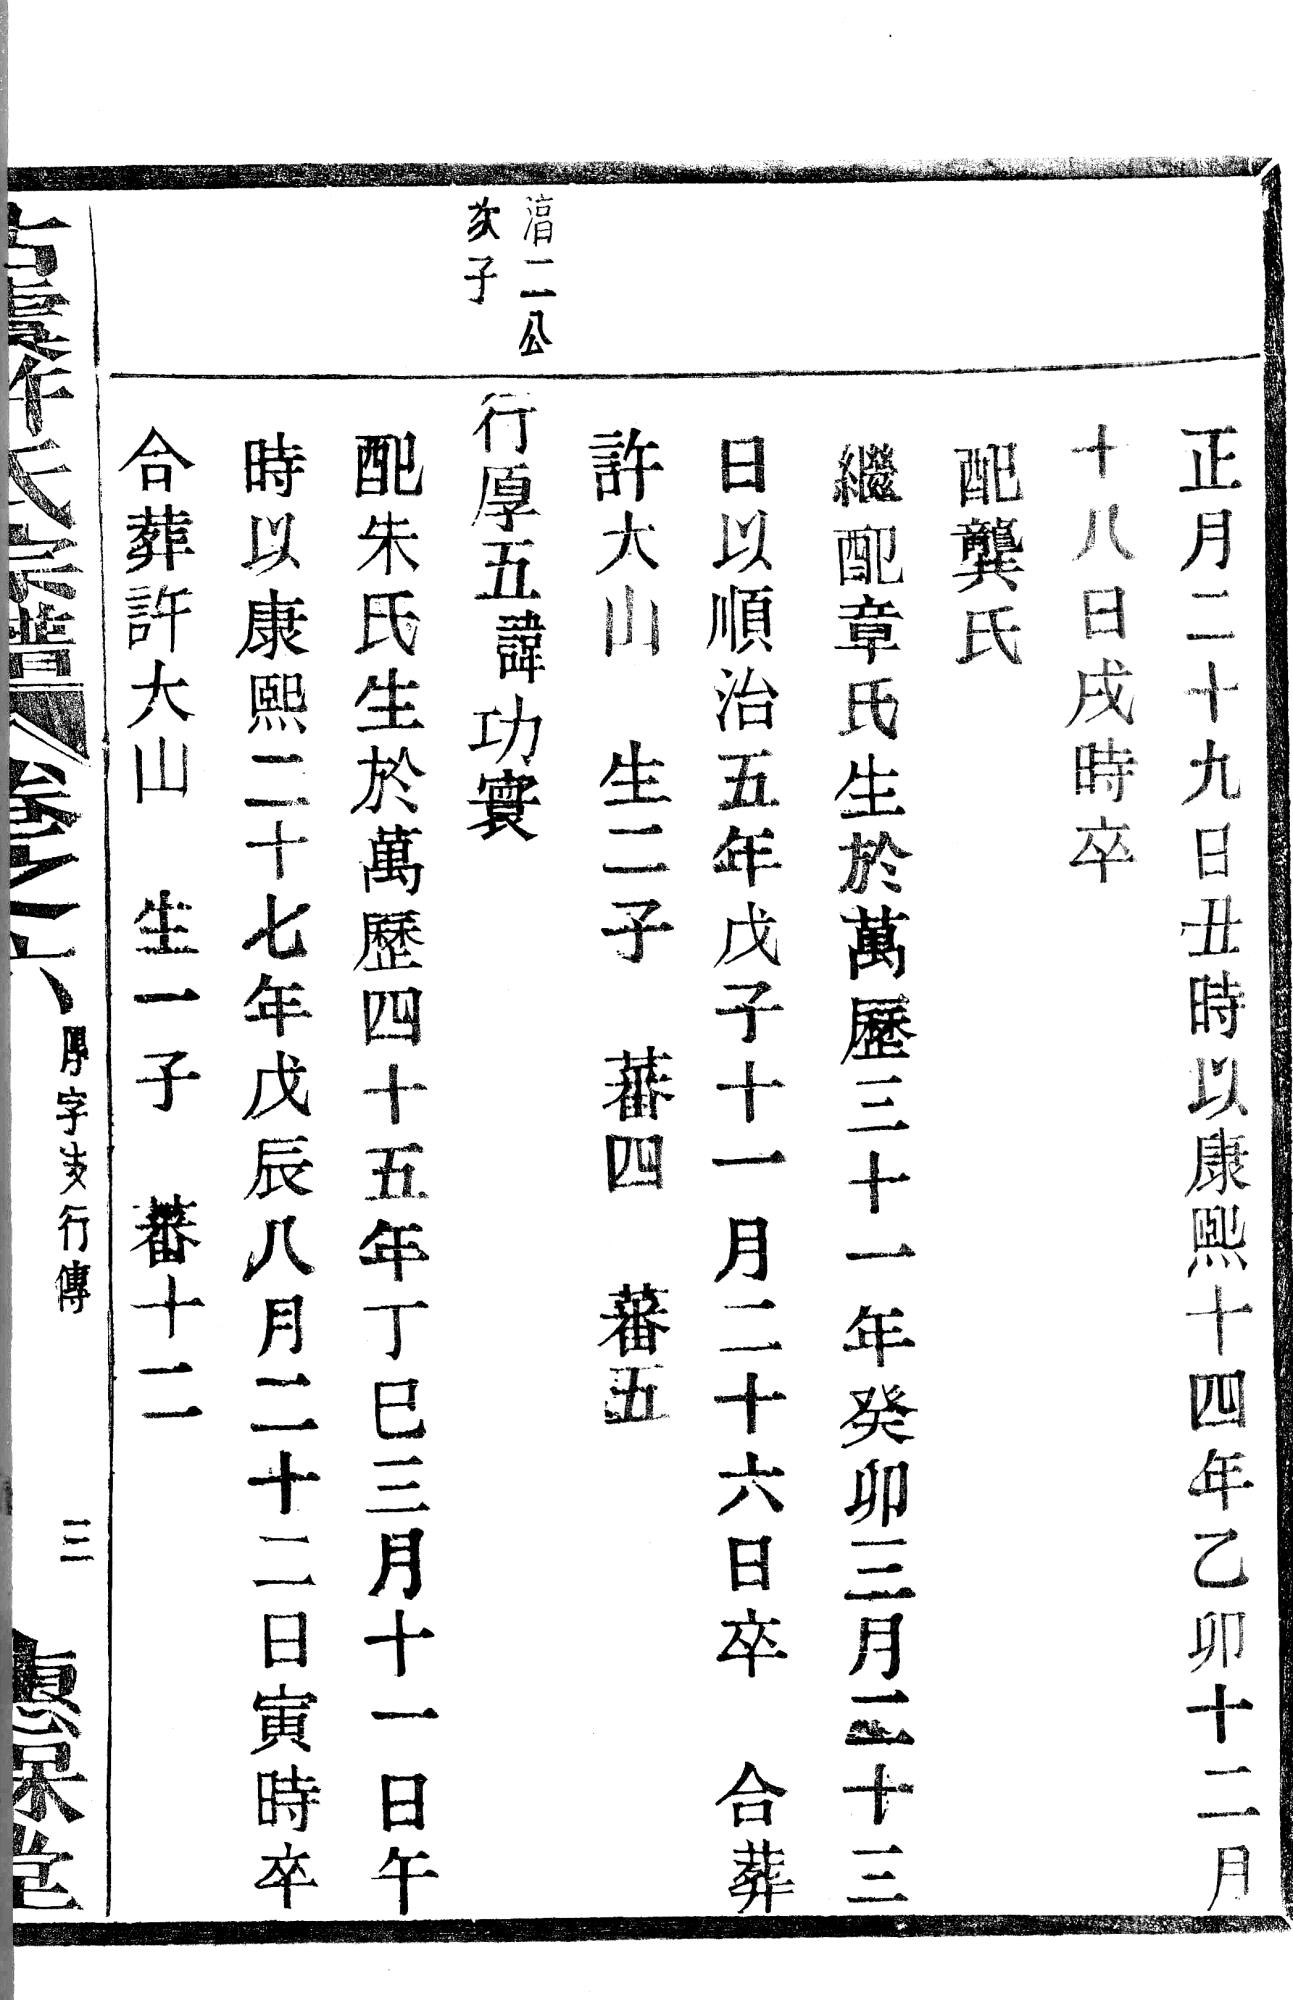 正月二十九日丑時以康熙十四年乙卯十二月
十八日戌時卒
配龔氏
繼配章氏生於萬歷三十一年癸卯三月二十三
日以順治五年戊子十一月二十六日卒 合葬
許大山 生二子 蕃四 蕃五
湻二公
次子
行厚五諱功實
配朱氏生於萬歷四十五年丁巳三月十一日午
時以康熙二十七年戊辰八月二十二日寅時卒
合葬許大山 生一子 蕃十二
古虞許氏宗譜 卷之六 厚字支行傳 三 惠保堂